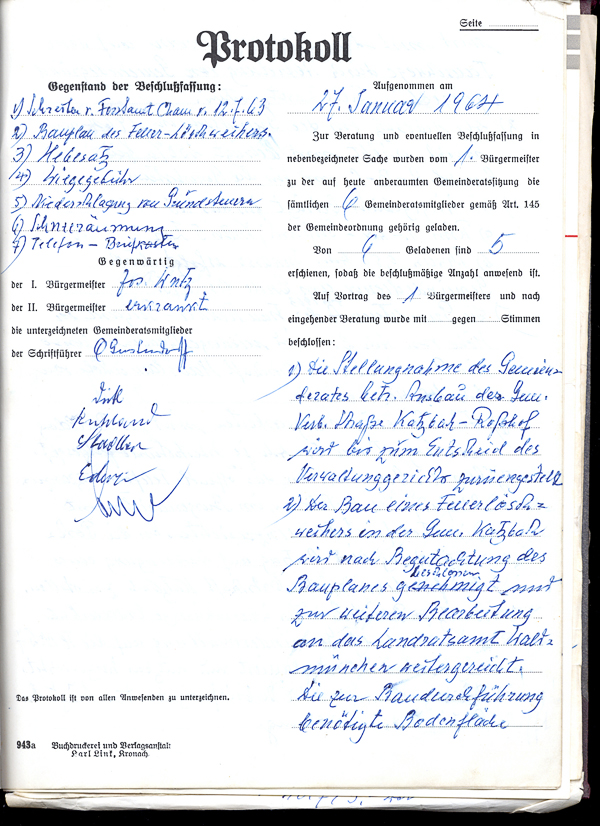 Seite
Protokoll
Gegenstand der Beschlußfassung:
1) Schreiben v. Forstamt Cham v. 12.7.63
2) Bauplan des Feuer-Löschweihers.
3) Hebesatz
4) Wiegegebühr
5) Niederschlagung von Grundsteuern
6) Schneeräumung
7) Telefon - Briefkasten
Gegenwärtig
der I. Bürgermeister Jos.
der II. Bürgermeister erkrankt
die unterzeichneten Gemeinderatsmitglieder
der Schriftführer
Das Protokoll ist von allen Anwesenden zu unterzeichnen.
943a Buchdruckerei und Verlagsanstalt
Karl Link, Kronach.
Aufgenommen am
27. Januar 1964
Zur Beratung und eventuellen Beschlußfassung in
nebenbezeichneter Sache wurden vom 1. Bürgermeister
zu der auf heute anberaumten Gemeinderatssitzung die
sämtlichen 6 Gemeinderatsmitglieder gemäß Art. 145
der Gemeindeordnung gehörig geladen.
Von 6 Geladenen sind 5
erschienen, sodaß die beschlußmäßige Anzahl anwesend ist.
Auf Vortrag des 1 Bürgermeisters und nach
eingehender Beratung wurde mit gegen Stimmen
beschlossen:
1) Die Stellungnahme des Gemein-
derates betr. Ausbau der Gem.
Verb. Straße Katzbach - Roßhof
wird bis zum Entscheid des
Verwaltungsgerichts zurückgestellt
2) Der Bau eines Feuerlösch=
weihers in der Gem Katzbach
wird nach Begutachtung des
beschlossen
Bauplanes genehmigt und
zur weiteren Bearbeitung
an das Landratsamt Wald=
münchen weitergereicht.
Die zur Baudurchführung
benötigte Bodenfläche